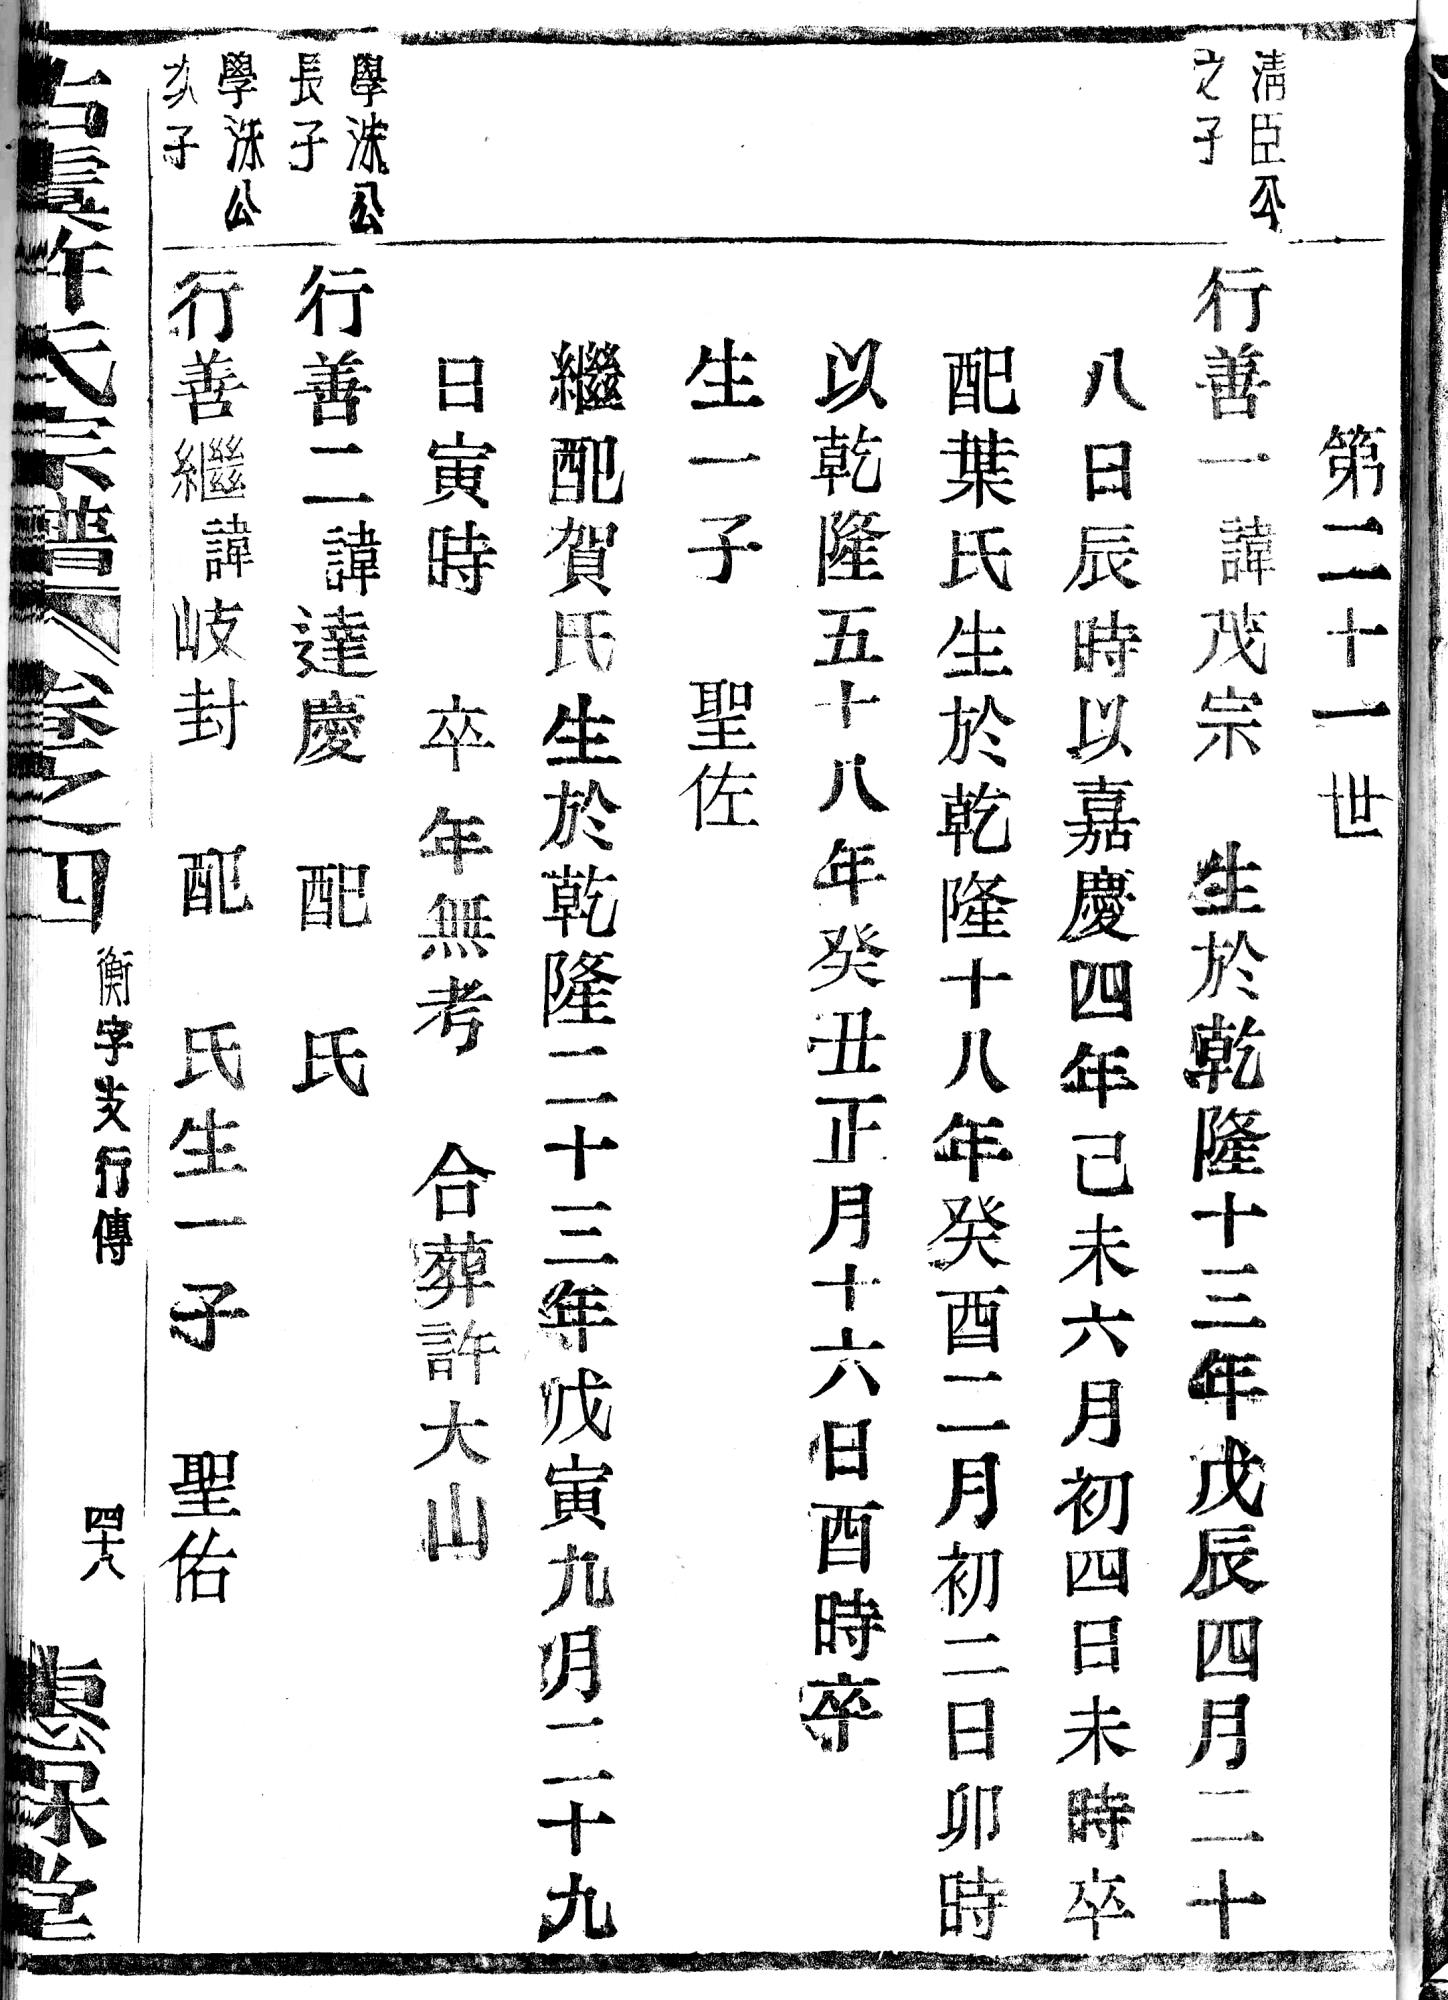 第二十一世
清臣公
之子
行善一諱茂宗　生於乾隆十三年戊辰四月二十
八日辰時以嘉慶四年己未六月初四日未時卒
配葉氏生於乾隆十八年癸酉二月初二日卯時
以乾隆五十八年癸丑正月十六日酉時卒
生一子　聖佐
繼配賀氏生於乾隆二十三年戊寅九月二十九
日寅時　卒年無考　合葬許大山
學洙公
長子
行善二諱達慶　配　氏
學洙公
次子
行善繼諱岐封　配　氏生一子　聖佑
古虞許氏宗譜　卷之四
衡字支行傳
四十八
堂